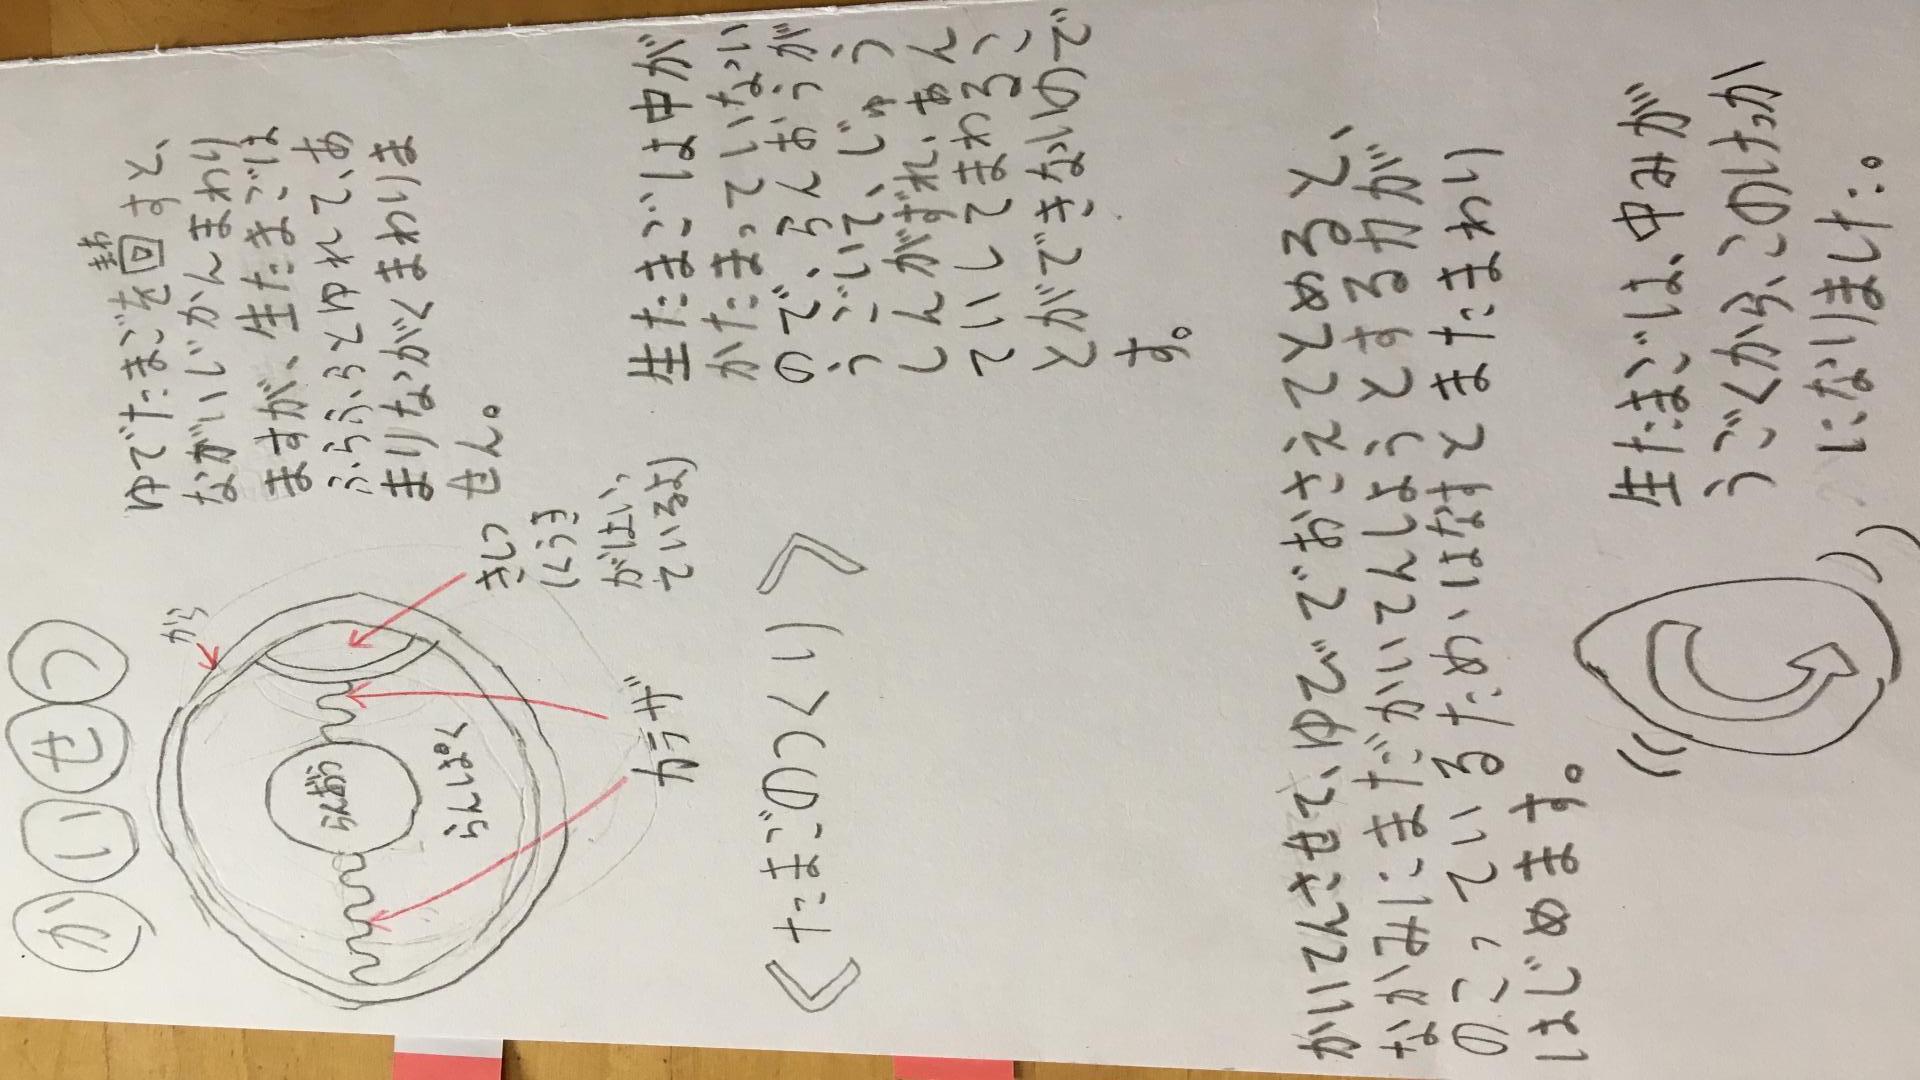 かいせつ
から
きしつ
(くうき
がはいっ
ているよ)
らんおう
らんぱく
カラザ
《たまごのつくり》
まわ
ゆでたまごを回すと、
ながいじかんまわり
ますが、生たまごは
ふらふらとゆれて、あ
まりながくまわりま
せん。
生たまごは中が
かたまっていない
ので、らんおうが
うごいて、じゅう
しんがずれ、あん
ていしてまわるこ
とができないので
す。
かいてんさせて、ゆびでおさえてとめると、
なかみにまだかいてんしようとする力が
のこっているため、はなすとまたまわり
はじめます。
生たまごは、中みが
うごくから、このけっか
になりました。